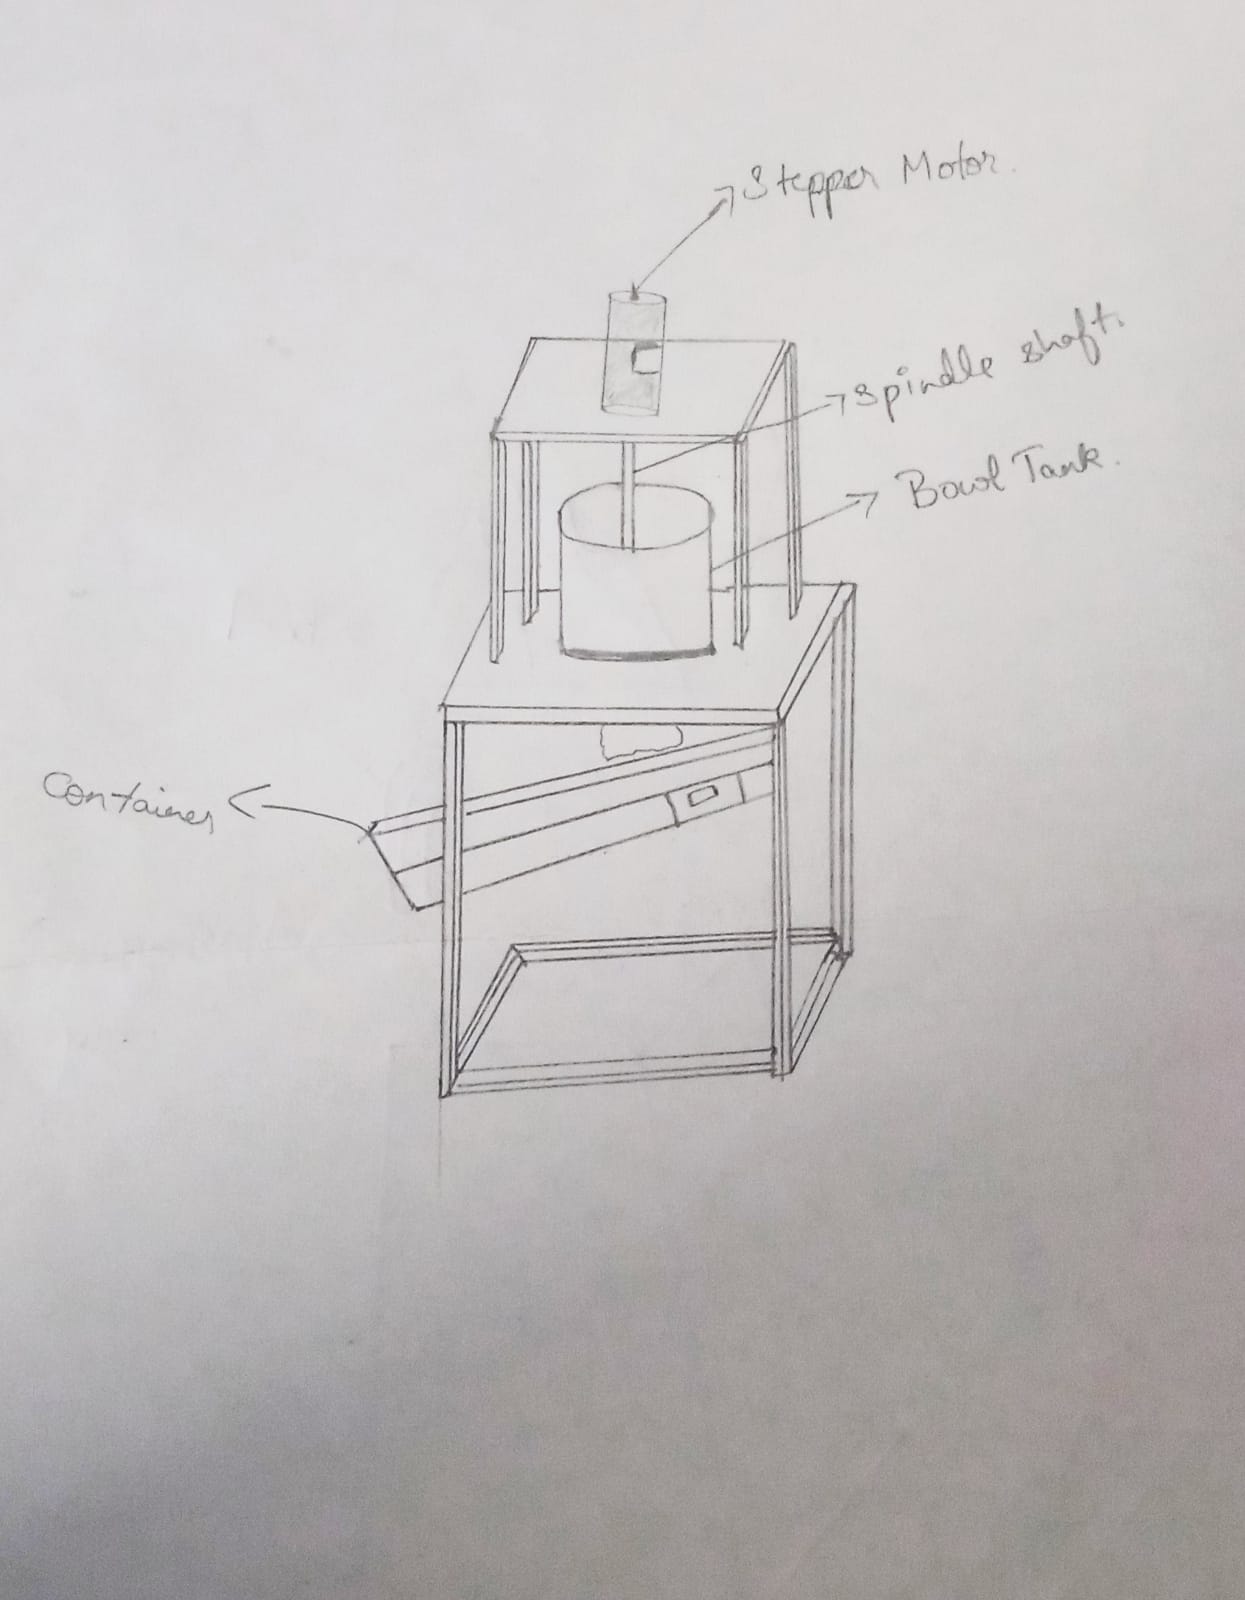 Stepper Motor.
Spindle shaft.
Bowl Tank.
Container